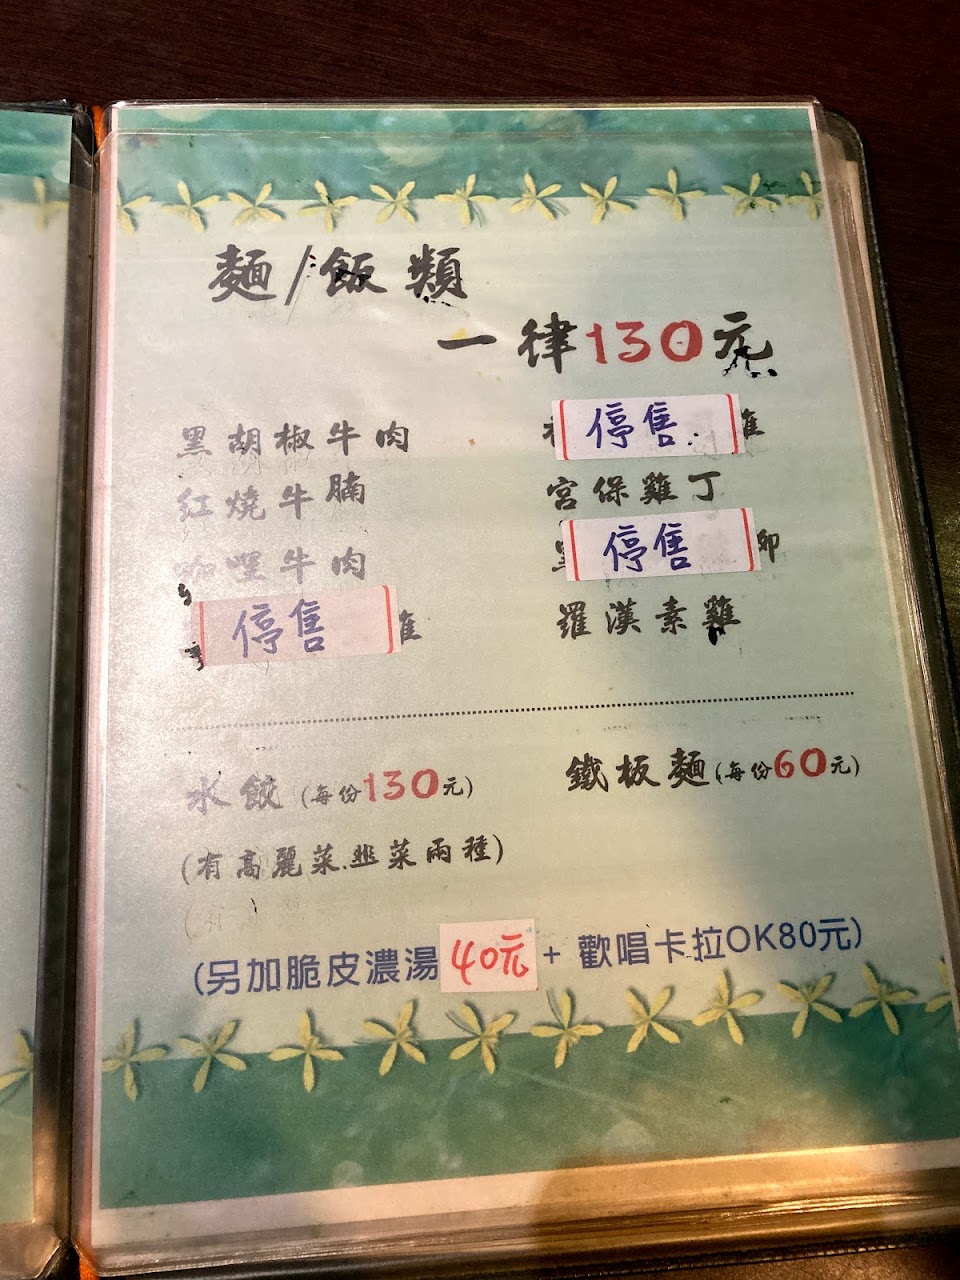 麵/飯類
一律130元
黑胡椒牛肉
紅燒牛腩
咖哩牛肉
停售 雞
停售 雞
宮保雞丁
停售 卵
羅漢素雞
水餃(每份130元)
(有高麗菜.韭菜兩種)
鐵板麵(每份60元)
(另加脆皮濃湯40元+ 歡唱卡拉OK80元)